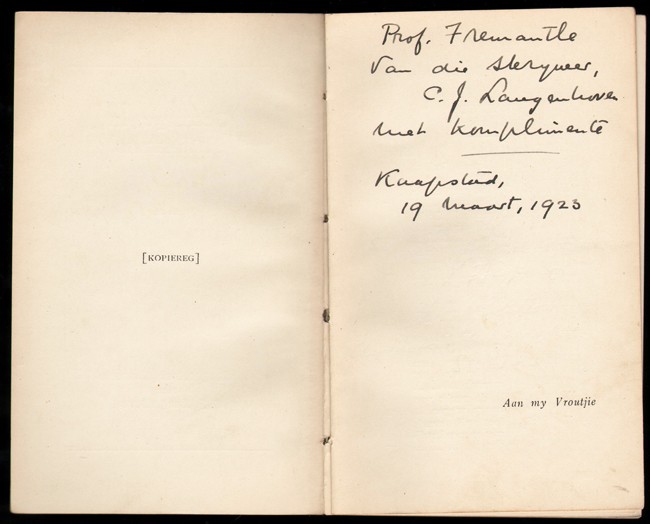 [KOPIEREG]
Prof. Fremantle
Van die skrywer,
C. J. Langenhoven
met komplimente
Kaapstad,
19 Maart, 1923
Aan my Vroutjie